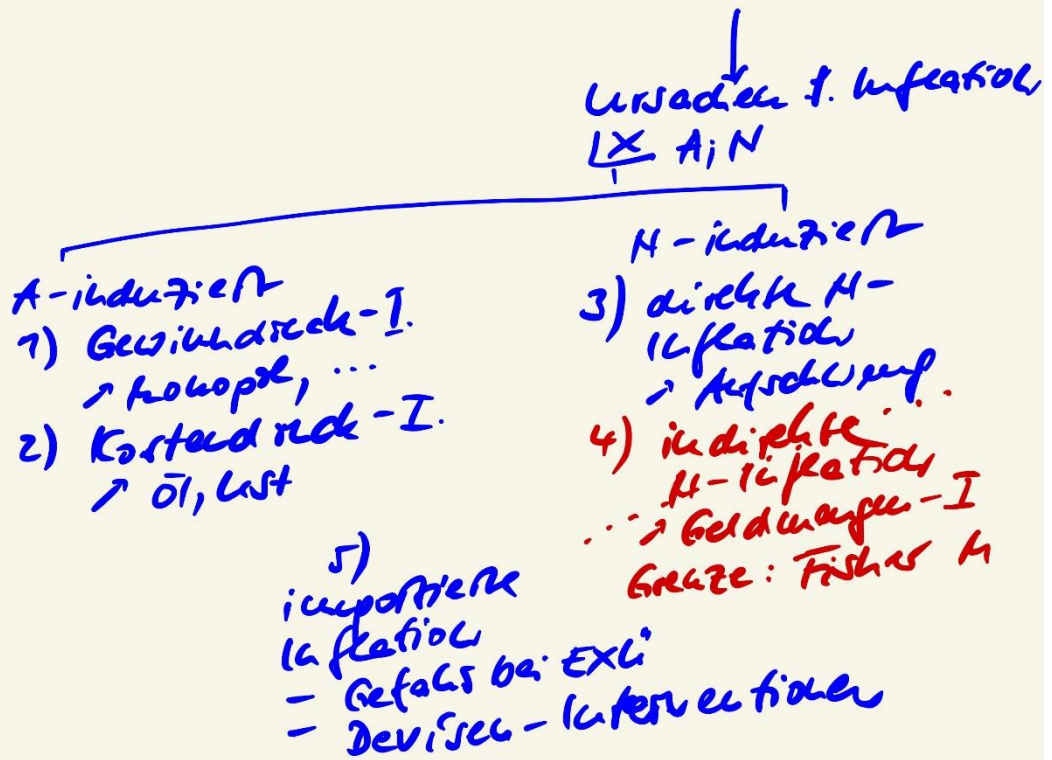 Ursachen f. Inflation
X A; N
A-induziert
1) Gewinndruck-I.
↗ Monopol, ...
2) Kostendruck-I.
↗ Öl, USt
N-induziert
3) direkte N-
Inflation
↗ Aufschwung
4) indirekte ...
N-Inflation
... ↗ Geldmengen-I
Grenze: Fisher
5)
importierte
Inflation
- Gefahr bei EXÜ
- Devisen-Interventionen